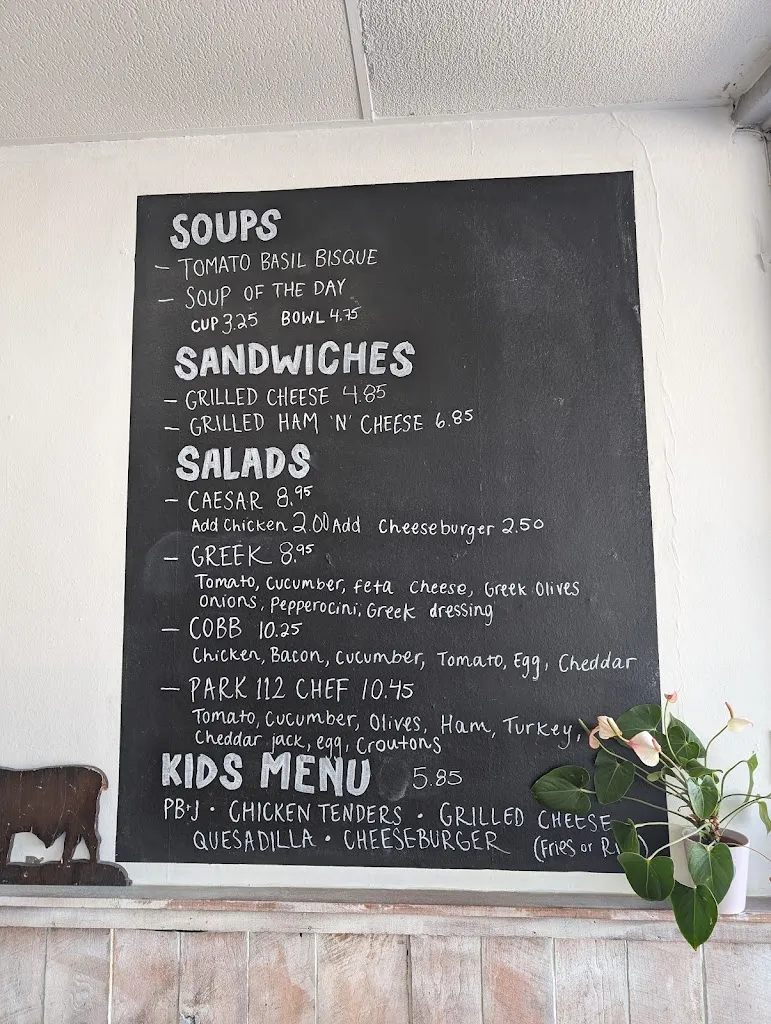 SOUPS
- TOMATO BASIL BISQUE
- SOUP OF THE DAY
CUP 3.25 BOWL 4.75
SANDWICHES
- GRILLED CHEESE 4.85
- GRILLED HAM 'N' CHEESE 6.85
SALADS
- CAESAR 8.95
Add Chicken 2.00 Add Cheeseburger 2.50
- GREEK 8.95
Tomato, Cucumber, feta Cheese, Greek Olives
Onions, Pepperocini, Greek dressing
- COBB 10.25
Chicken, Bacon, Cucumber, Tomato, Egg, Cheddar
- PARK 112 CHEF 10.45
Tomato, Cucumber, Olives, Ham, Turkey,
Cheddar jack, egg, Croutons
KIDS MENU 5.85
PB+J • CHICKEN TENDERS • GRILLED CHEESE
QUESADILLA • CHEESEBURGER (Fries or